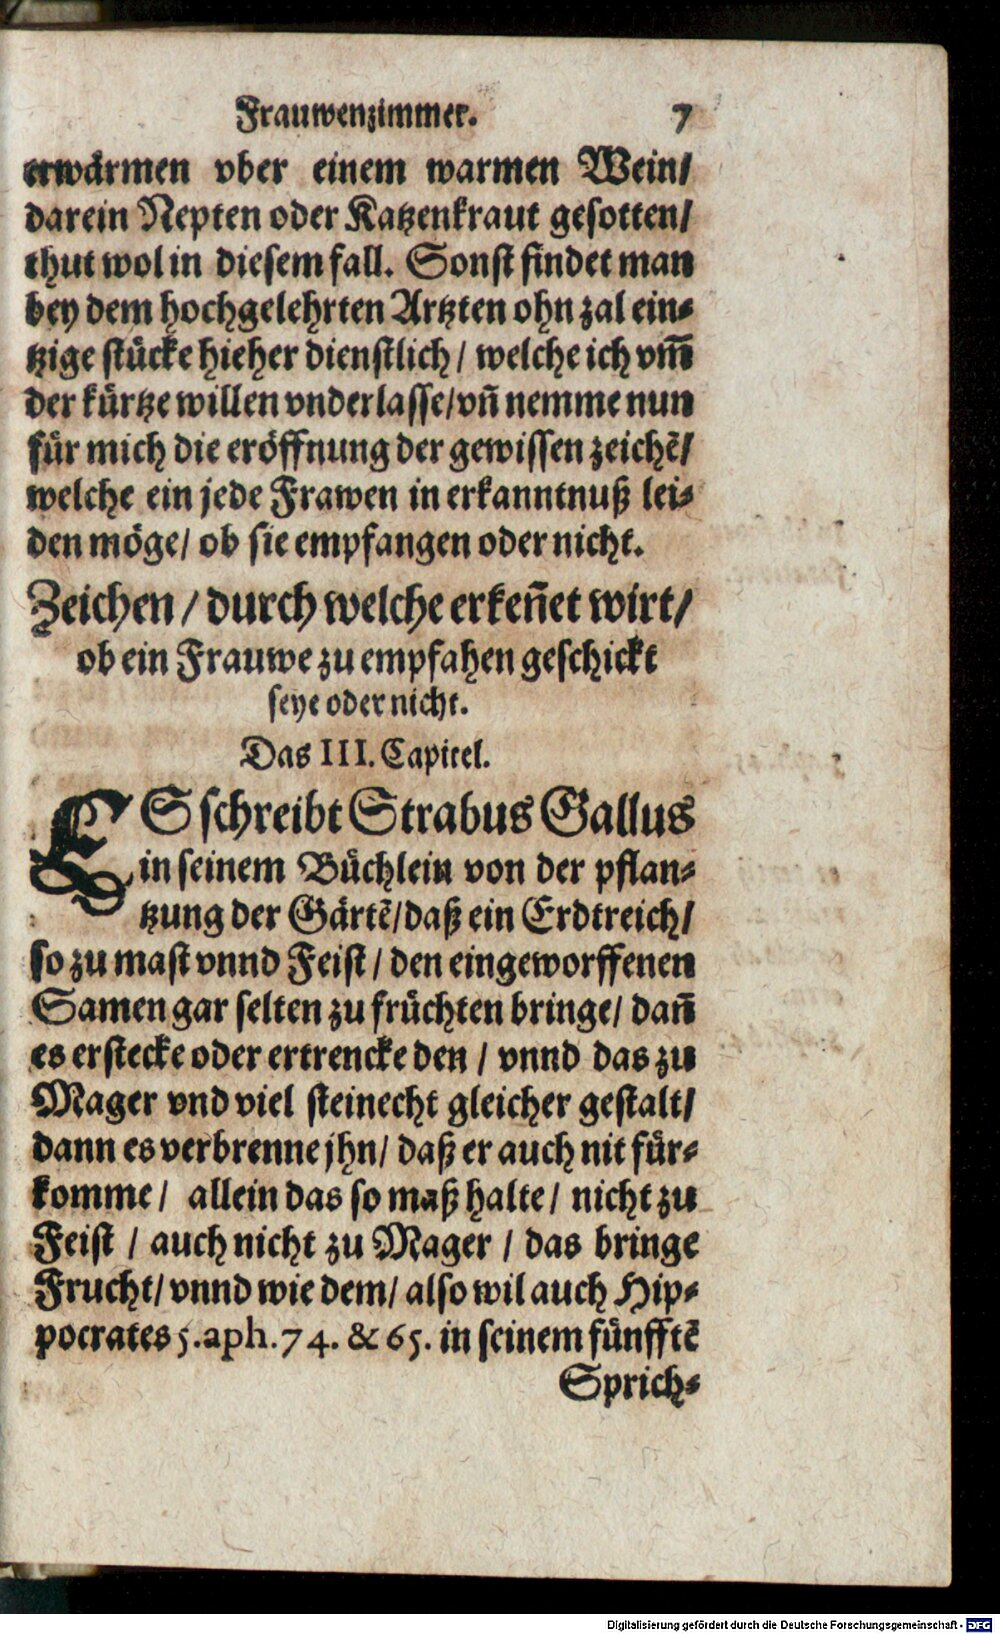 Frauwenzimmer. 7
erwärmen vber einem warmen Wein/
darein Nepten oder Katzenkraut gesotten/
thut wol in diesem fall. Sonst findet man
bey dem hochgelehrten Artzten ohn zal ein-
tzige stücke hieher dienstlich/ welche ich vm̃
der kürtze willen vnderlasse/ vñ nemme nun
für mich die eröffnung der gewissen zeichẽ/
welche ein jede Frawen in erkanntnuß lei-
den möge/ ob sie empfangen oder nicht.
Zeichen/ durch welche erkeñet wirt/
ob ein Frauwe zu empfahen geschickt
seye oder nicht.
Das III. Capitel.
ES schreibt Strabus Gallus
in seinem Büchlein von der pflan-
tzung der Gärtẽ/ daß ein Erdtreich/
so zu mast vnnd Feist/ den eingeworffenen
Samen gar selten zu früchten bringe/ dañ
es erstecke oder ertrencke den/ vnnd das zu
Mager vnd viel steinecht gleicher gestalt/
dann es verbrenne jhn/ daß er auch nit für-
komme/ allein das so maß halte/ nicht zu
Feist/ auch nicht zu Mager/ das bringe
Frucht/ vnnd wie dem/ also wil auch Hip-
pocrates 5. aph. 74. & 65. in seinem fünfftẽ
Sprich-
Digitalisierung gefördert durch die Deutsche Forschungsgemeinschaft - DFG